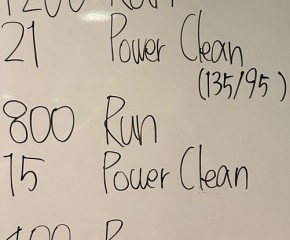 1200 Run
21 Power Clean
(135/95)
800 Run
15 Power Clean
400